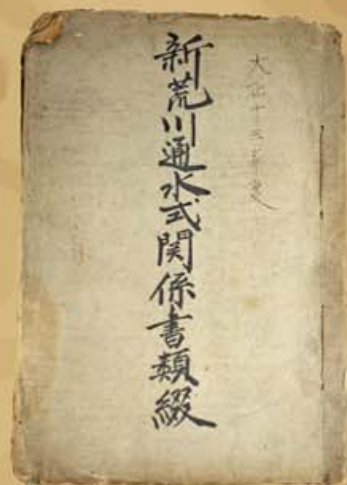 大正十三年度
新荒川通水式関係書類綴